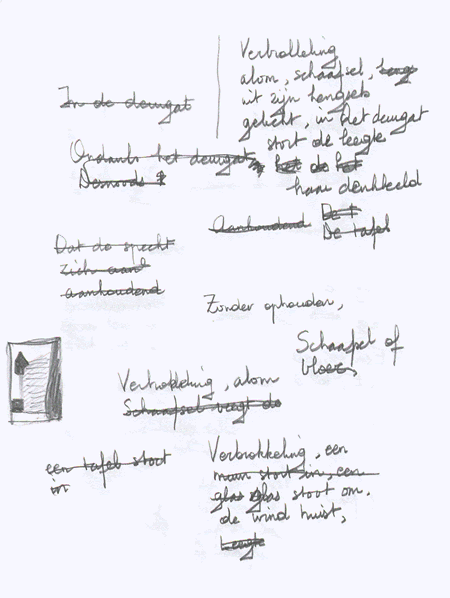 Verbrokkeling
alom, schaafsel,
uit zijn hengsels
gelicht, in het deurgat
stort de leegte
het de het
haar denkbeeld
In de deurgat
Ondanks het deurgat
Desnoods
Aanhoudend
De t
De tafel
Dat de specht
zich aan
aanhoudend
Zonder ophouden,
Schaafsel of
vloer,
Verbrokkeling, alom
Schaafsel veegt de
een tafel stoot
in
Verbrokkeling, een
muur stort in, een
glas glas stoot om.
de wind huist,
Leegte